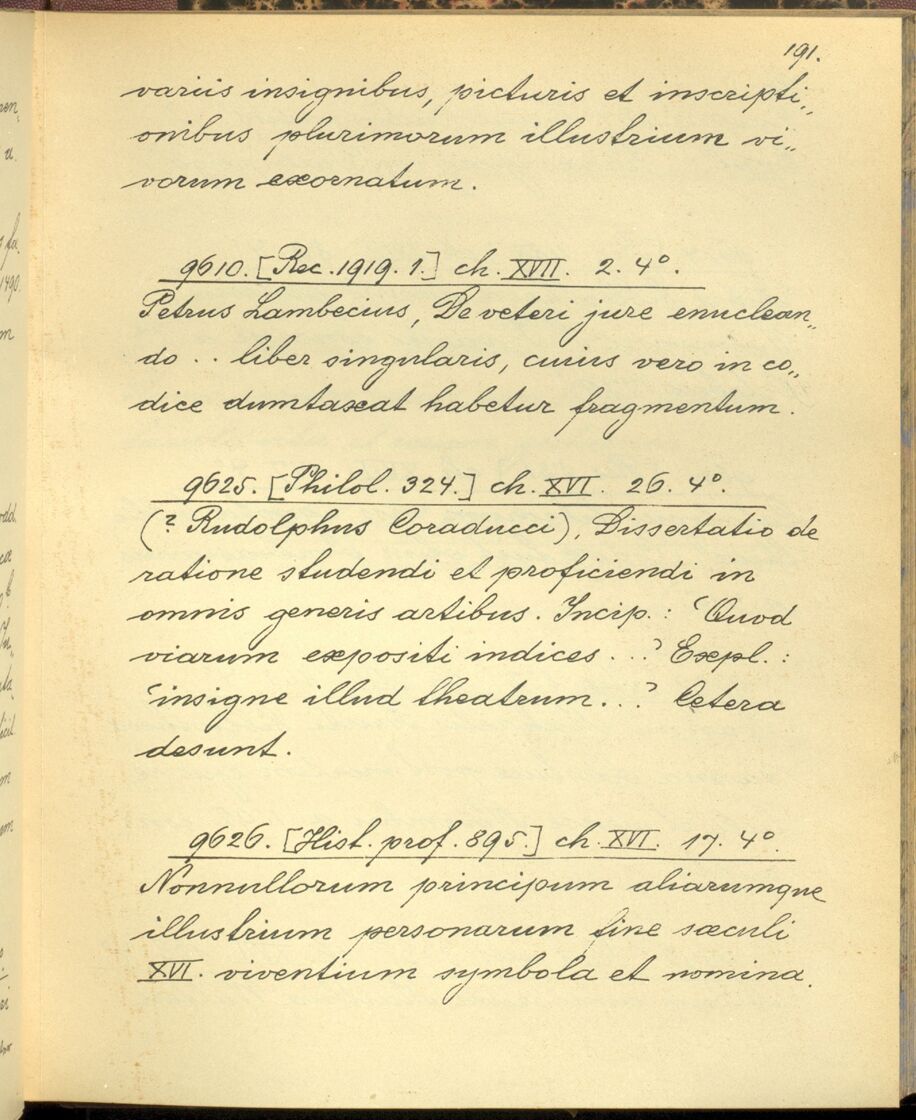 191.
variis insignibus, picturis et inscripti„
onibus plurimorum illustrium vi„
rorum exornatum.
9610. [Rec. 1919. 1.] ch. XVII. 2. 4°.
Petrus Lambecius, De veteri jure enuclean„
do .. liber singularis, cuius vero in co„
dice dumtaxat habetur fragmentum.
9625. [Philol. 324.] ch. XVI. 26. 4°.
(? Rudolphus Coraducci), Dissertatio de
ratione studendi et proficiendi in
omnis generis artibus. Incip.: 'Quod
viarum expositi indices...' Expl.:
'insigne illud theatrum...' Cetera
desunt.
9626. [Hist. prof. 895.] ch. XVI. 17. 4°.
Nonnullorum principum aliarumque
illustrium personarum fine sæculi
XVI. viventium symbola et nomina.